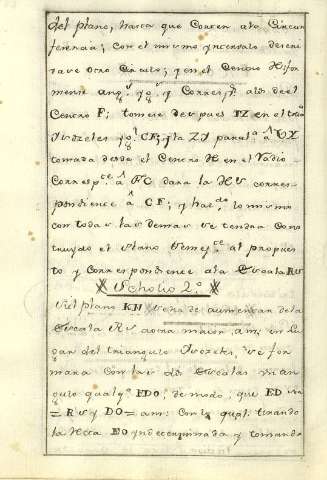 del plano, hasta que corten ala Circun
ferencia; con el mismo yntervalo descri
vase otro Circulo; y en el Centro H for
mense ang.s yg.s y Corresp.tes alos del
Centro F; tomese despues IZ en el trian
Isozeles yg.l CF; la ZI paral.a â VX
tomada desde el Centro H en el Radio
Corresp.te â FC dara la HV corres-
pondiente â CF; y haz.do lo mismo
con todas las demas se tendra Cons
truydo el plano semej.te al propues
to y Correspondiente ala Escala RS
Scholio 2.º
Si el plano KN se ha de aumentar dela
Escala RS aotra maior, am; en lu
gar del triangulo Isozeles, se for
mara con las dos Escalas un an
gulo qualq.a EDO; de modo, que ED sea
= RS y DO = am: Con lo qual tirando
la Recta EO yndeterminada y tomando